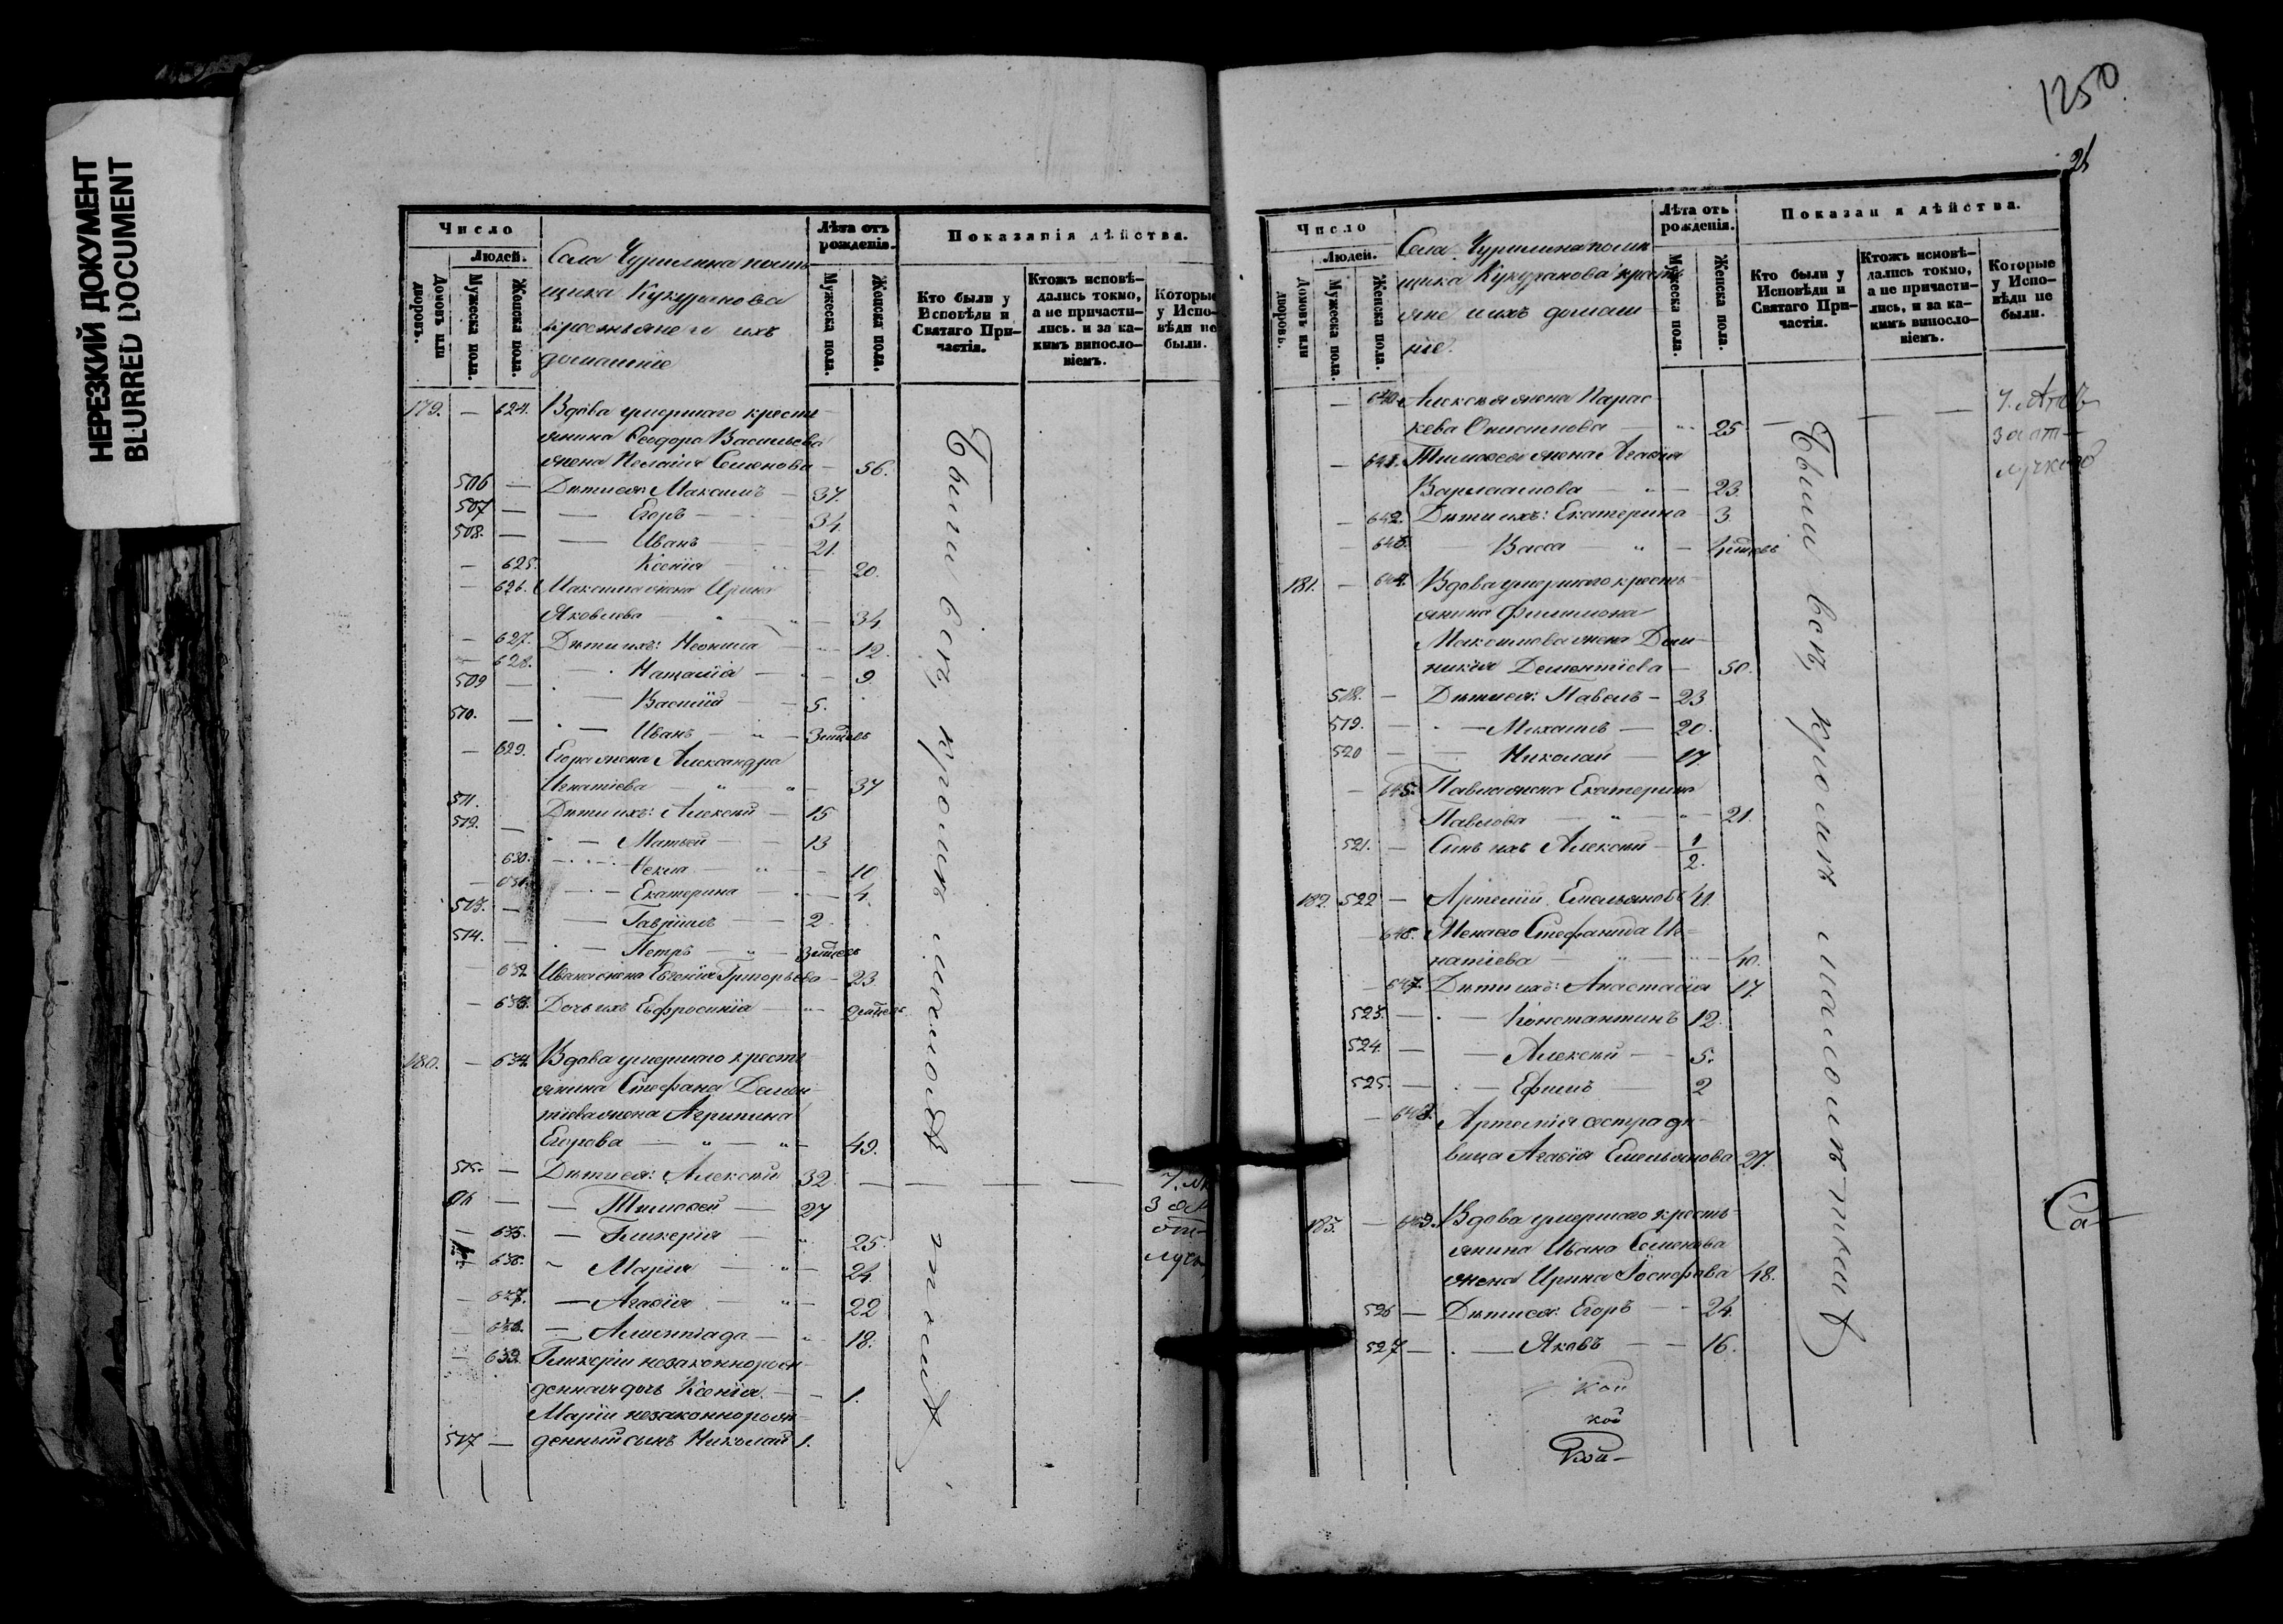 НЕРЕЗКИЙ ДОКУМЕНТ
BLURRED DOCUMENT
Число
Людей.
Домовъ или дворовъ.
Мужеска пола.
Женска пола.
Села Чурилина помѣ-
щика Кукуранова
крестьяне и ихъ
домашніе
Лѣта отъ рожденія.
Мужеска пола.
Женска пола.
Показанія дѣйства.
Кто были у Исповѣди и Святаго Причастія.
Ктожъ исповѣдались токмо, а не причастились, и за какимъ винословіемъ.
Которые у Исповѣди не были.
179. — 624. Вдова умершаго кресть-
янина Ѳеодора Васильева
жена Пелагія Семенова — 56.
506 — Дѣти ея: Максимъ — 37.
507 — — Егоръ — 34
508. — — Иванъ — 21.
— 625. Ксенія — 20.
— 626. Максима жена Ирина
Яковлева — 34
— 627. Дѣти ихъ: Неонила — 12.
— 628. Наталія — 9.
509 — Василій — 5.
510. — Иванъ — 3 мѣсяцъ
— 629. Егора жена Александра
Игнатіева — 37
511. Дѣти ихъ: Алексѣй — 15
512. — Матвей — 13
630. Ѳекла — 10
— 631. Екатерина — 4.
513. — Гавріилъ — 2
514. — Петръ — 3 мѣсяцъ
— 632 Ивана жена Евгенія Григорьева — 23
— 633. Дочь ихъ Евфросинія —
180. — 634. Вдова умершаго кресть-
янина Стефана Демен-
тіева жена Агрипина
Егорова — 49.
515. — Дѣти ея: Алексѣй 32 — — — —
516 — — Тимоѳей — 27
— 635. — Гликерія — 25.
— 636. — Марія — 24
— 637. — Агаѳія — 22
— 638. — Олимпіада — 18.
— 639. Гликеріи незаконнорож-
денная дочь Ксенія — 1.
Маріи незаконнорож-
517 — денный сынъ Николай 1.
Были всѣ, кромѣ
отлуч
1250
Число
Людей.
Домовъ или дворовъ.
Мужеска пола.
Женска пола.
Села Чурилина помѣ-
щика Кукуранова кресть-
яне и ихъ домаш-
ніе.
Лѣта отъ рожденія.
Мужеска пола.
Женска пола.
Показанія дѣйства.
Кто были у Исповѣди и Святаго Причастія.
Ктожъ исповѣдались токмо, а не причастились, и за какимъ винословіемъ.
Которые у Исповѣди не были.
— 640. Алексѣя жена Парас-
кева Онисимова — 25 — — —
— 641. Тимоѳея жена Агаѳія
Варлаамова — 23.
— 642. Дѣти ихъ: Екатерина 3
— 643. — Васса —
181. — 644. Вдова умершаго кресть-
янина Филимона
Максимова жена Дом-
никія Дементіева — 50.
518. — Дѣти ея: Павелъ — 23
519. — — Михаилъ — 20.
520 — Николай — 17.
— 645. Павла жена Екатерина
Павлова — 21.
521. — Сынъ ихъ Алексѣй — 1/2.
182. 522 — Артемій Емельяновъ 41.
— 646. Жена его Стефанида Иг-
натіева — 40.
— 647. Дѣти ихъ: Анастасія 17.
523. — — Константинъ 12.
524. — — Алексѣй — 5.
525. — — Ефимъ 2
— 648. Артемія сестра дѣ-
вица Агаѳія Емельянова 27.
183. — 649. Вдова умершаго кресть-
янина Ивана Семенова
жена Ирина Іосифова 48.
526 — Дѣти ея: Егоръ — 24.
527 — — Яковъ — 16.
за от-
лучкою
Были всѣ, кромѣ
Са-
кой
кой